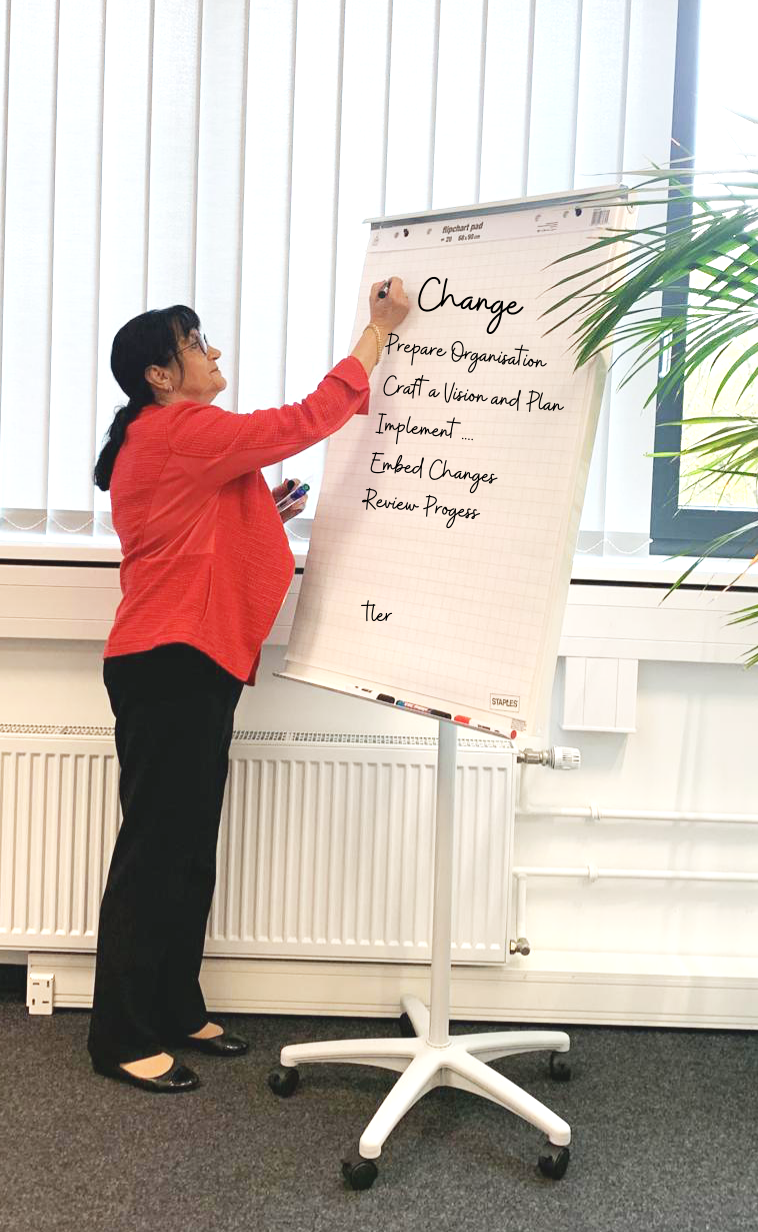 flipchart pad
20 68 x 98 cm
Change
Prepare Organisation
Craft a Vision and Plan
Implement ....
Embed Changes
Review Progess
tler
STAPLES